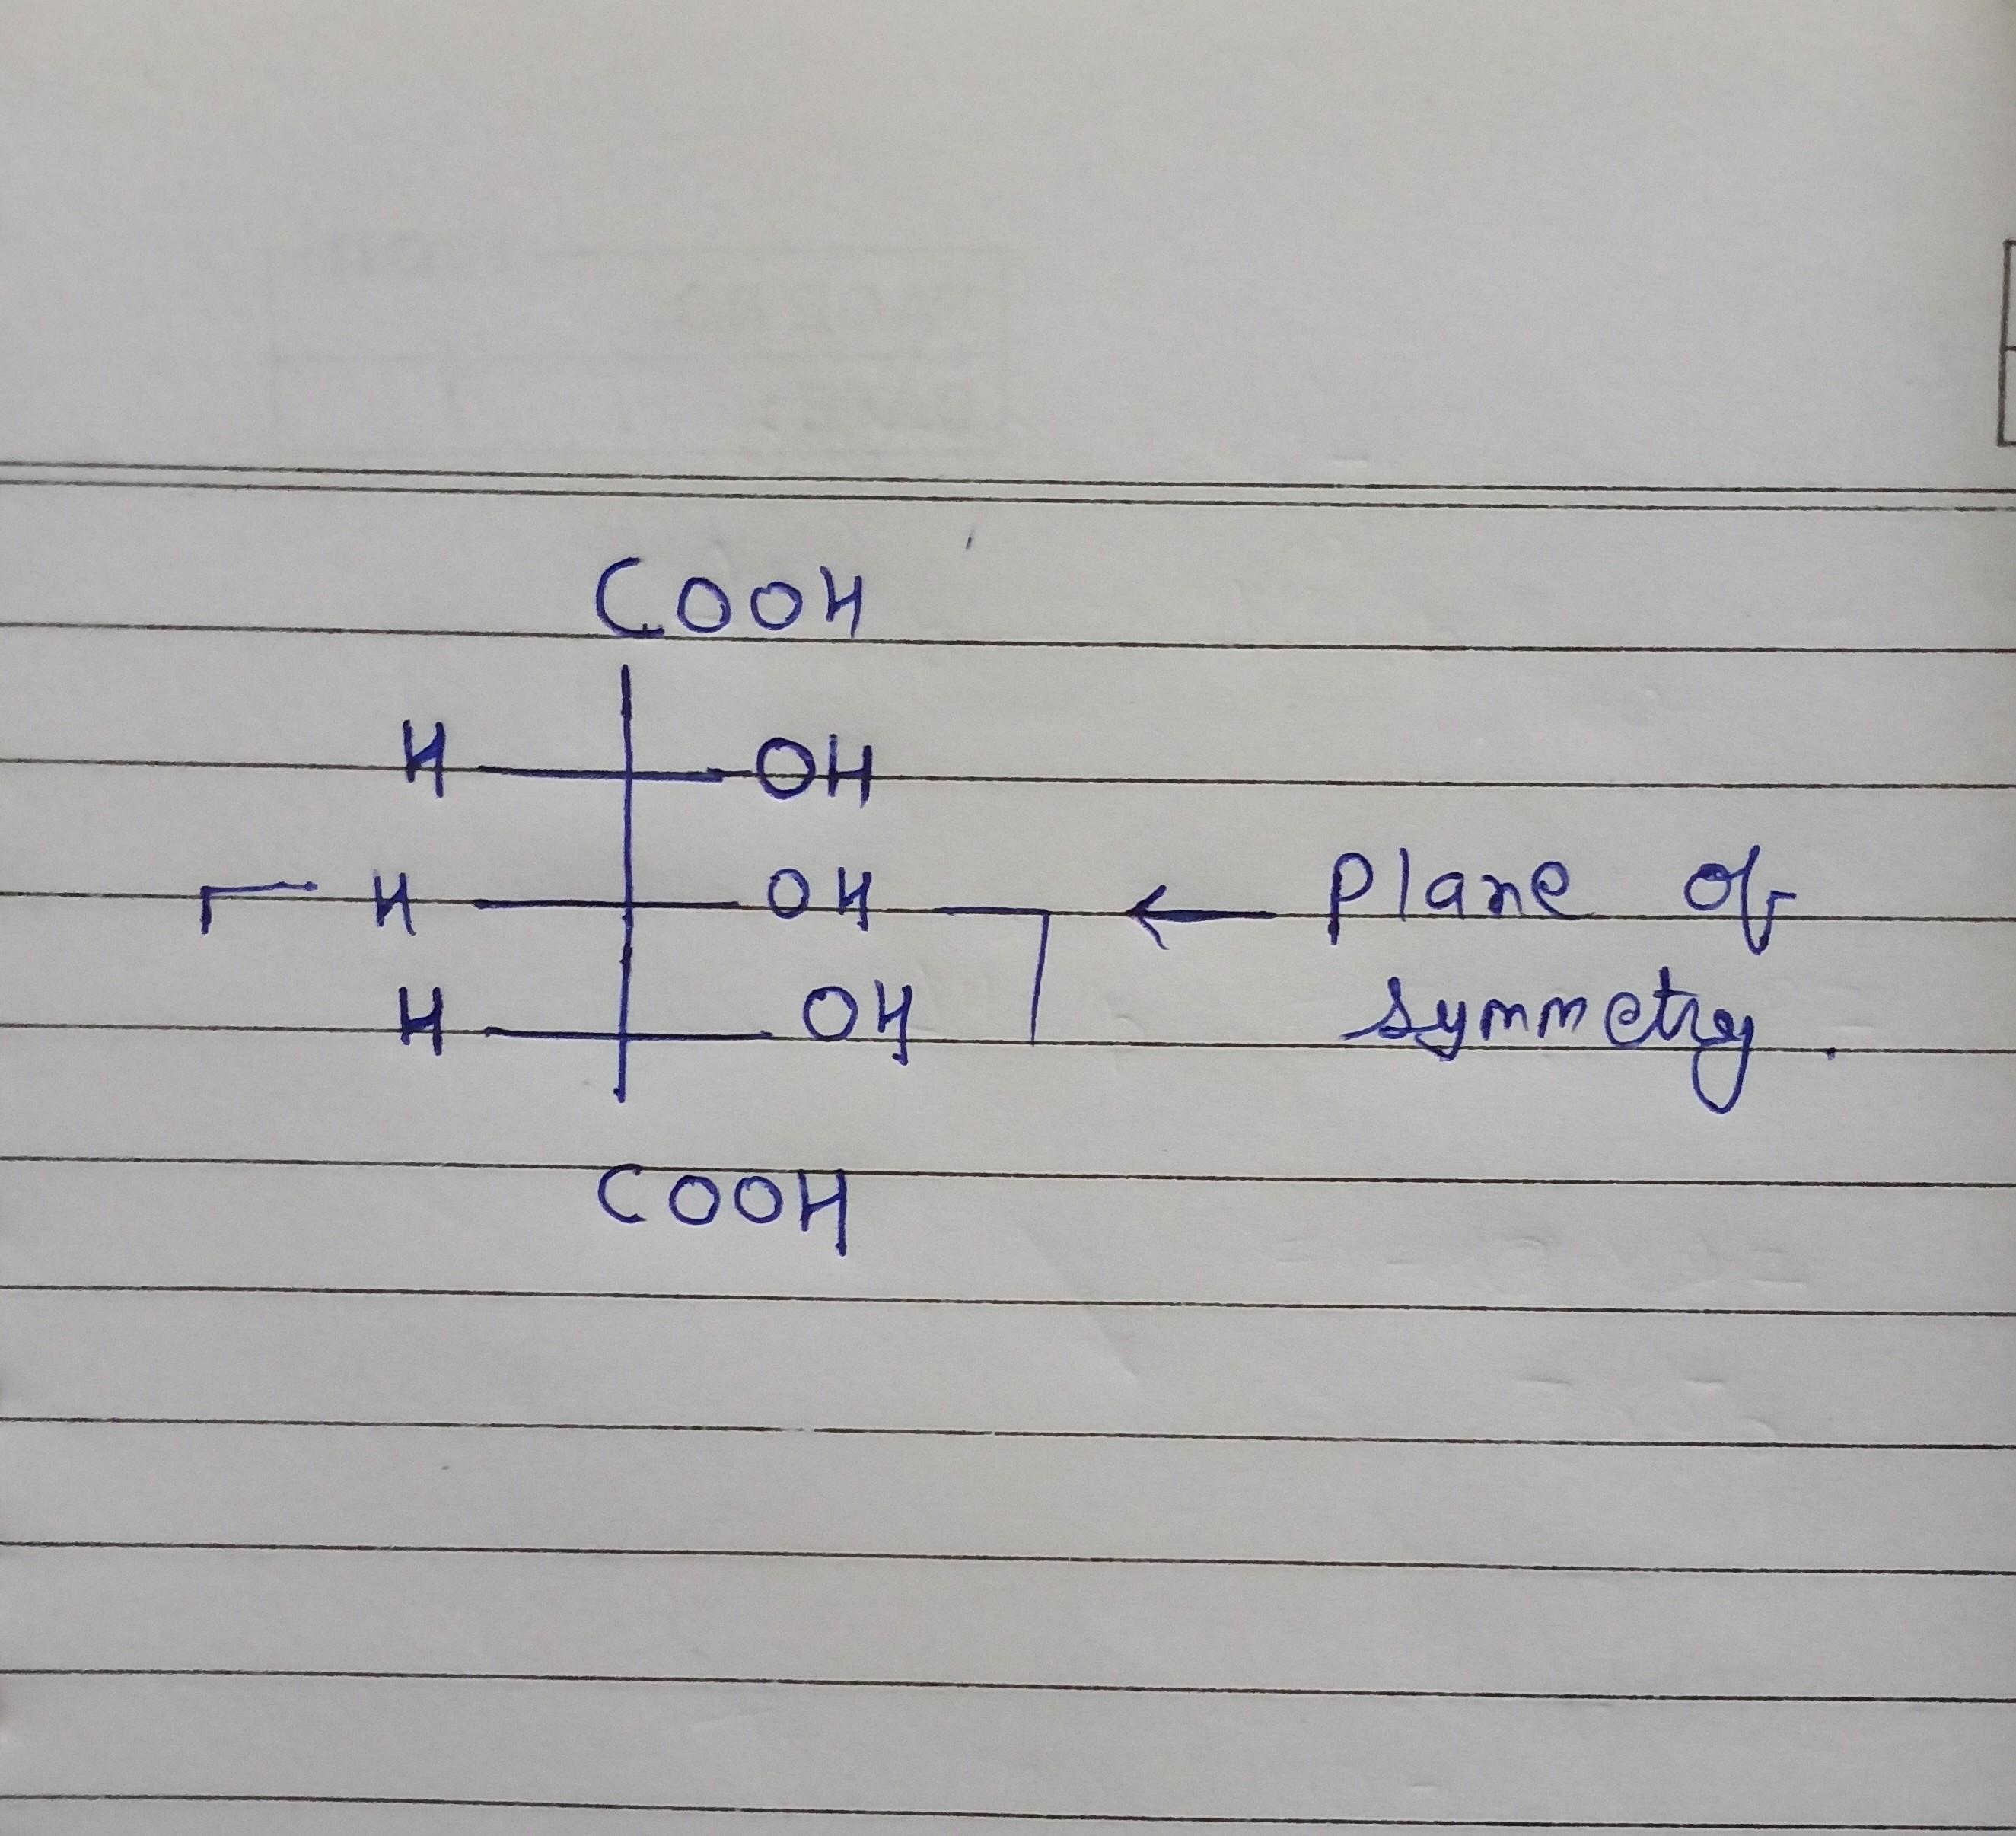 COOH
H OH
H OH ← Plane of
H OH symmetry.
COOH